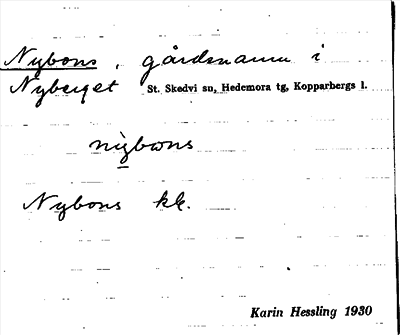 Nybons, gårdsnamn i
Nyberget St. Skedvi sn, Hedemora tg, Kopparbergs l.
nybons
Nybons kk.
Karin Hessling 1930